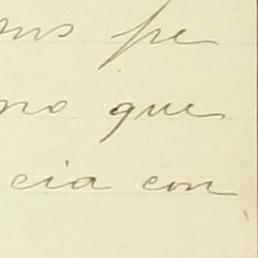 pe
no que
cia con